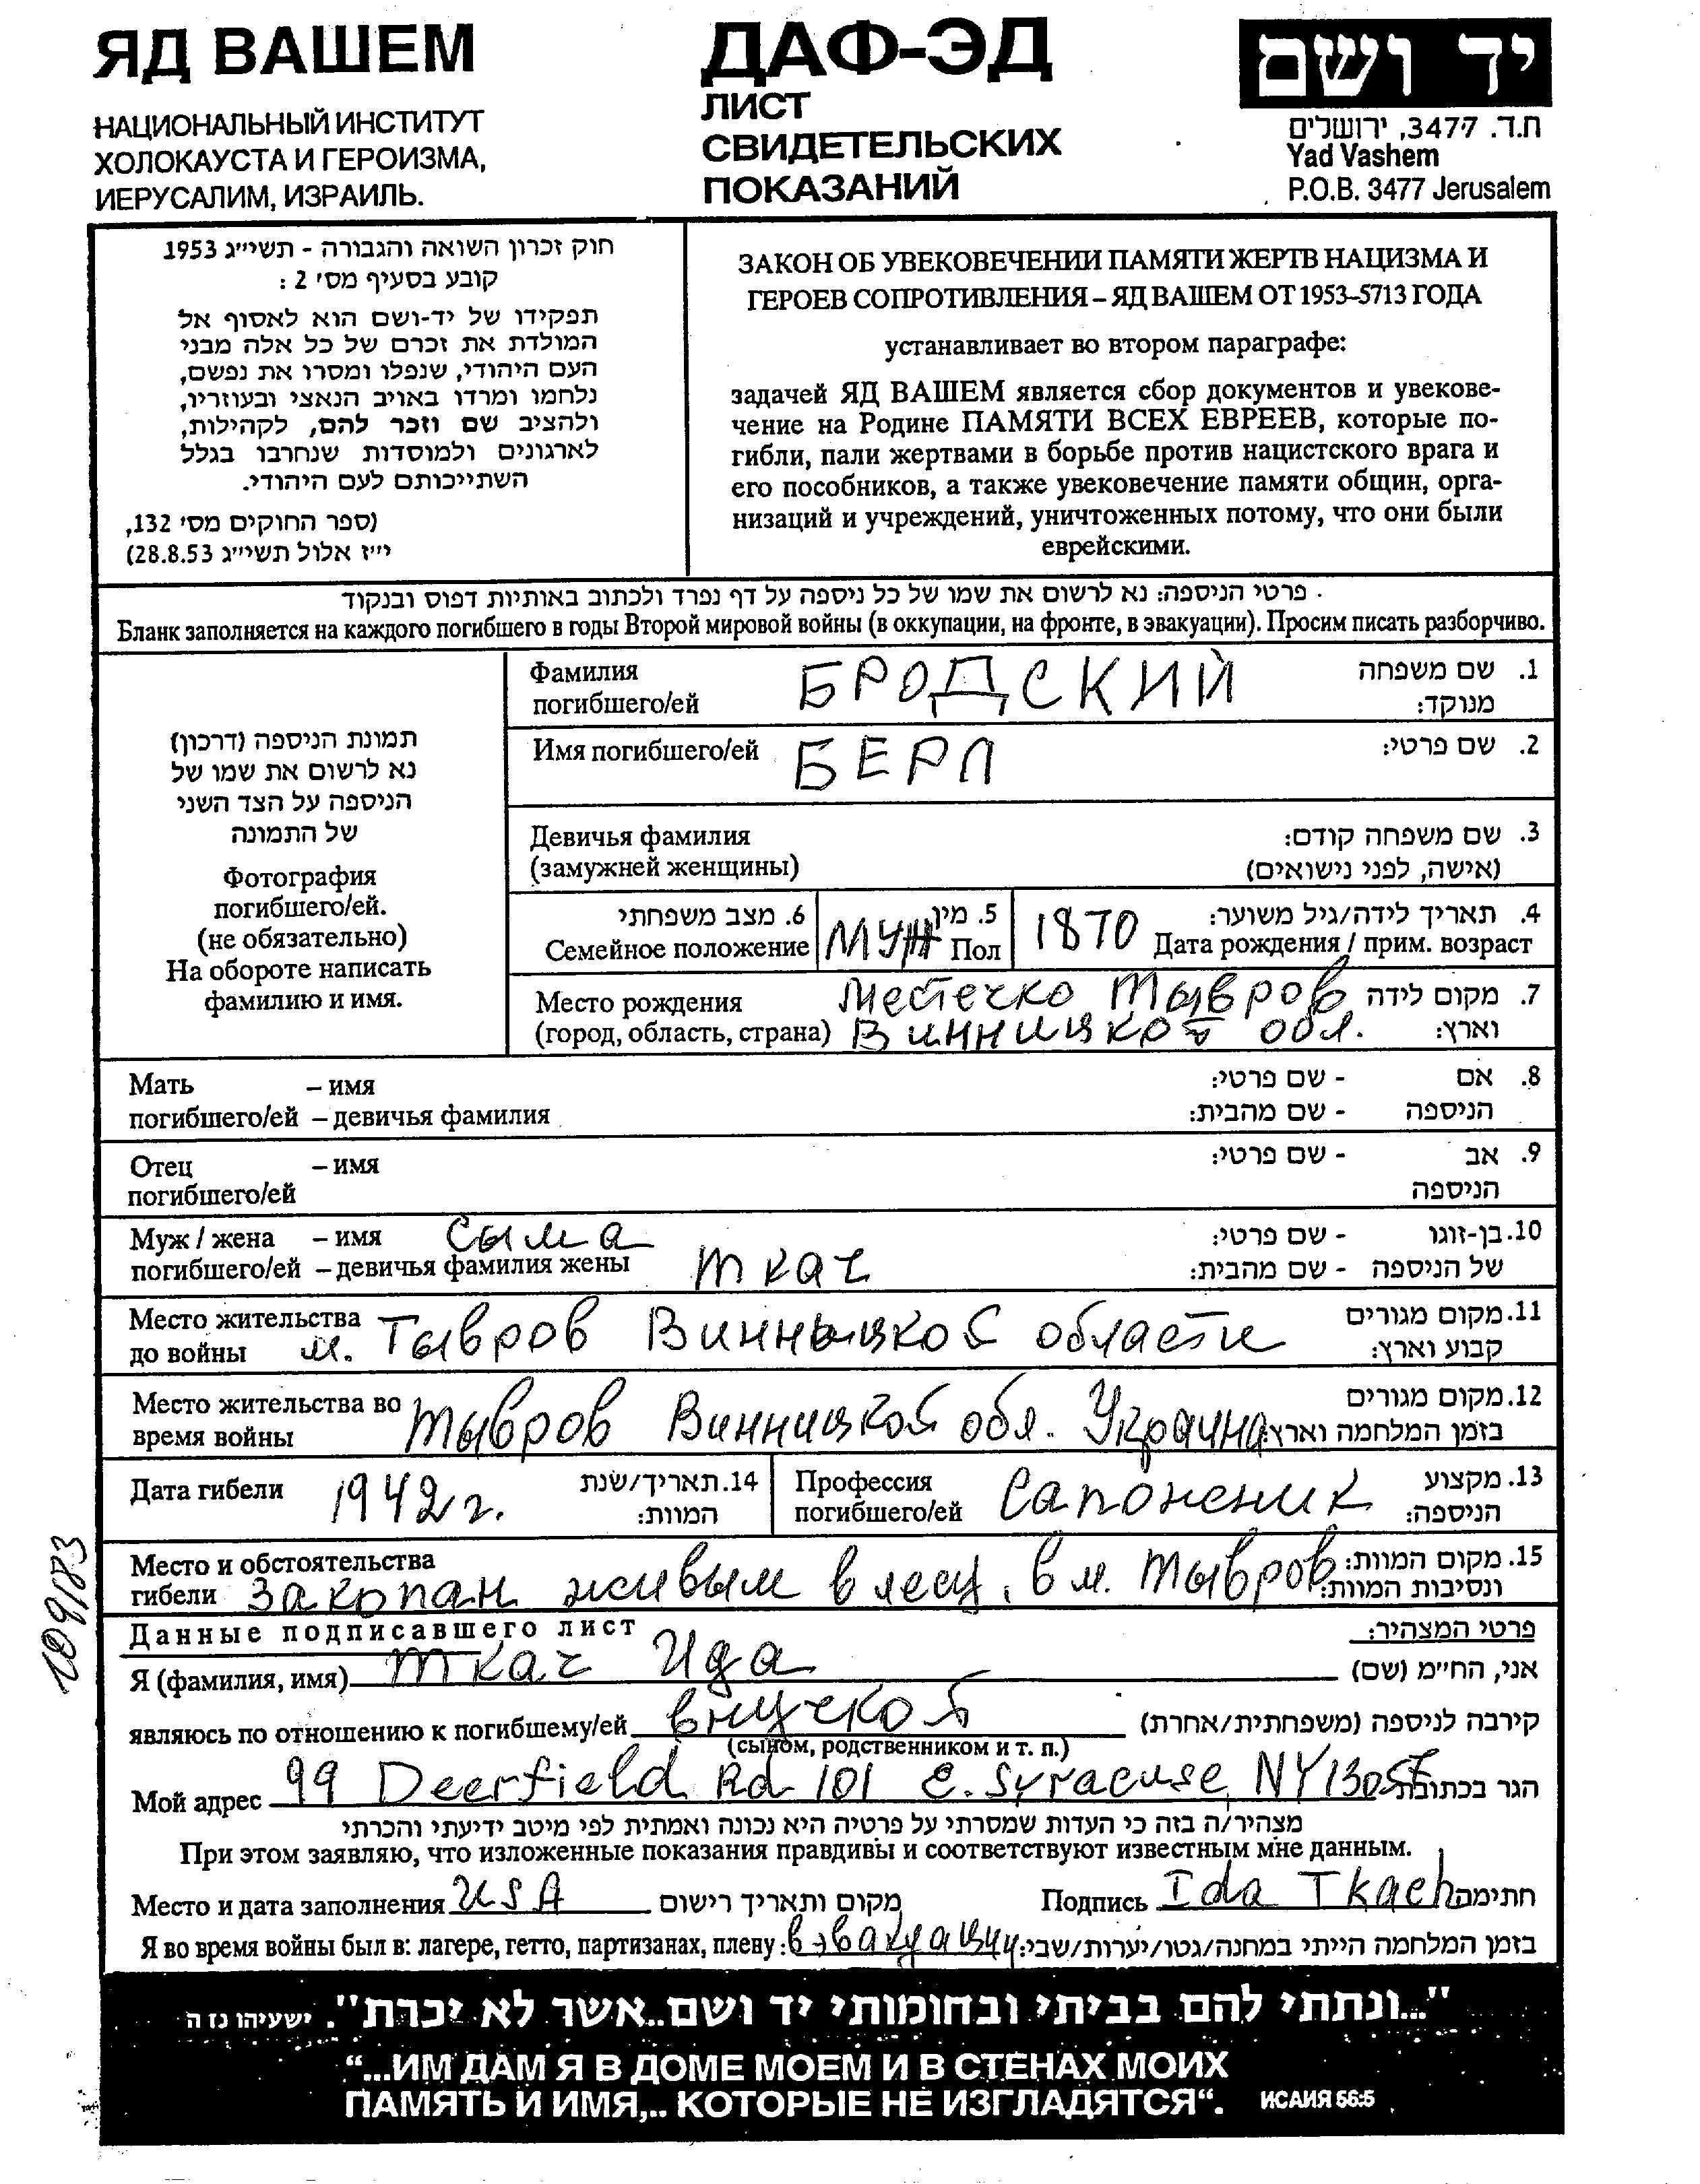 ЯД ВАШЕМ
НАЦИОНАЛЬНЫЙ ИНСТИТУТ
ХОЛОКАУСТА И ГЕРОИЗМА,
ИЕРУСАЛИМ, ИЗРАИЛЬ.
ДАФ-ЭД
ЛИСТ
СВИДЕТЕЛЬСКИХ
ПОКАЗАНИЙ
יד ושם
ת.ד. 3477, ירושלים
Yad Vashem
P.O.B. 3477 Jerusalem
חוק זכרון השואה והגבורה - תשי״ג 1953
קובע בסעיף מס׳ 2 :
תפקידו של יד-ושם הוא לאסוף אל
המולדת את זכרם של כל אלה מבני
העם היהודי, שנפלו ומסרו את נפשם,
נלחמו ומרדו באויב הנאצי ובעוזריו,
ולהציב שם וזכר להם, לקהילות,
לארגונים ולמוסדות שנחרבו בגלל
השתייכותם לעם היהודי.
(ספר החוקים מס׳ 132,
י״ז אלול תשי״ג 28.8.53)
ЗАКОН ОБ УВЕКОВЕЧЕНИИ ПАМЯТИ ЖЕРТВ НАЦИЗМА И
ГЕРОЕВ СОПРОТИВЛЕНИЯ – ЯД ВАШЕМ ОТ 1953–5713 ГОДА
устанавливает во втором параграфе:
задачей ЯД ВАШЕМ является сбор документов и увекове-
чение на Родине ПАМЯТИ ВСЕХ ЕВРЕЕВ, которые по-
гибли, пали жертвами в борьбе против нацистского врага и
его пособников, а также увековечение памяти общин, орга-
низаций и учреждений, уничтоженных потому, что они были
еврейскими.
פרטי הניספה: נא לרשום את שמו של כל ניספה על דף נפרד ולכתוב באותיות דפוס ובנקוד
Бланк заполняется на каждого погибшего в годы Второй мировой войны (в оккупации, на фронте, в эвакуации). Просим писать разборчиво.
תמונת הניספה (דרכון)
נא לרשום את שמו של
הניספה על הצד השני
של התמונה
Фотография
погибшего/ей.
(не обязательно)
На обороте написать
фамилию и имя.
Фамилия БРОДСКИЙ 1. שם משפחה
погибшего/ей מנוקד:
Имя погибшего/ей БЕРЛ 2. שם פרטי:
Девичья фамилия 3. שם משפחה קודם:
(замужней женщины) (אישה, לפני נישואים)
6. מצב משפחתי 5. מין 4. תאריך לידה/גיל משוער:
Семейное положение МУЖ Пол 1870 Дата рождения / прим. возраст
Место рождения Местечко Тывров 7. מקום לידה
(город, область, страна) Винницкой обл. וארץ:
Мать – имя 8. אם - שם פרטי:
погибшего/ей – девичья фамилия הניספה - שם מהבית:
Отец – имя 9. אב - שם פרטי:
погибшего/ей הניספה
Муж / жена – имя Сыма 10. בן-זוגו - שם פרטי:
погибшего/ей – девичья фамилия жены Ткач של הניספה - שם מהבית:
Место жительства 11. מקום מגורים
до войны м. Тывров Винныцкой области קבוע וארץ:
Место жительства во 12. מקום מגורים
время войны Тывров Винницкой обл. Украина בזמן המלחמה וארץ:
Дата гибели 1942 г. 14. תאריך/שנת המוות: Профессия 13. מקצוע
погибшего/ей Сапожник הניספה:
Место и обстоятельства 15. מקום המוות:
гибели Закопан живым в лесу, в м. Тывров ונסיבות המוות:
Данные подписавшего лист פרטי המצהיר:
Я (фамилия, имя) Ткач Ида אני, הח״מ (שם)
являюсь по отношению к погибшему/ей внучкой קירבה לניספה (משפחתית/אחרת)
(сыном, родственником и т. п.)
Мой адрес 99 Deerfield Rd 101 E. Syracuse, NY 13057 הגר בכתובת
מצהיר/ה בזה כי העדות שמסרתי על פרטיה היא נכונה ואמתית לפי מיטב ידיעתי והכרתי
При этом заявляю, что изложенные показания правдивы и соответствуют известным мне данным.
Место и дата заполнения USA מקום ותאריך רישום Подпись Ida Tkach חתימה
Я во время войны был в: лагере, гетто, партизанах, плену: в эвакуации בזמן המלחמה הייתי במחנה/גטו/יערות/שבי:
109/83
"...ונתתי להם בביתי ובחומותי יד ושם..אשר לא יכרת". ישעיהו נז ה
“...ИМ ДАМ Я В ДОМЕ МОЕМ И В СТЕНАХ МОИХ
ПАМЯТЬ И ИМЯ,.. КОТОРЫЕ НЕ ИЗГЛАДЯТСЯ“. ИСАИЯ 56:5